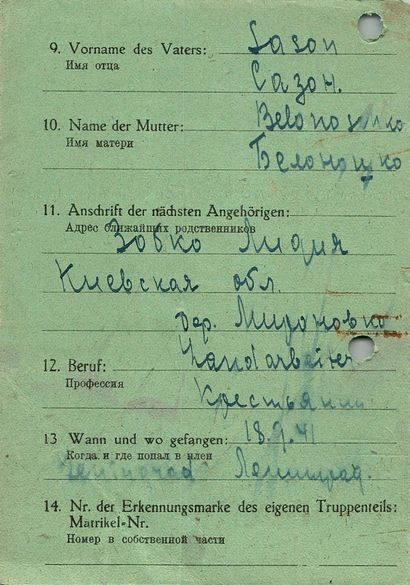 9. Vorname des Vaters: Sason
Имя отца
Сазон.
10. Name der Mutter: Belonoshko
Имя матери
Белоношко
11. Anschrift der nächsten Angehörigen:
Адрес ближайших родственников
Зовко Лидия
Киевская обл.
дер. Мироновко
12. Beruf: Landarbeiter
Профессия
Крестьянин
13 Wann und wo gefangen: 18.9.41
Когда и где попал в плен
Ленинград.
14. Nr. der Erkennungsmarke des eigenen Truppenteils:
Matrikel-Nr.
Номер в собственной части